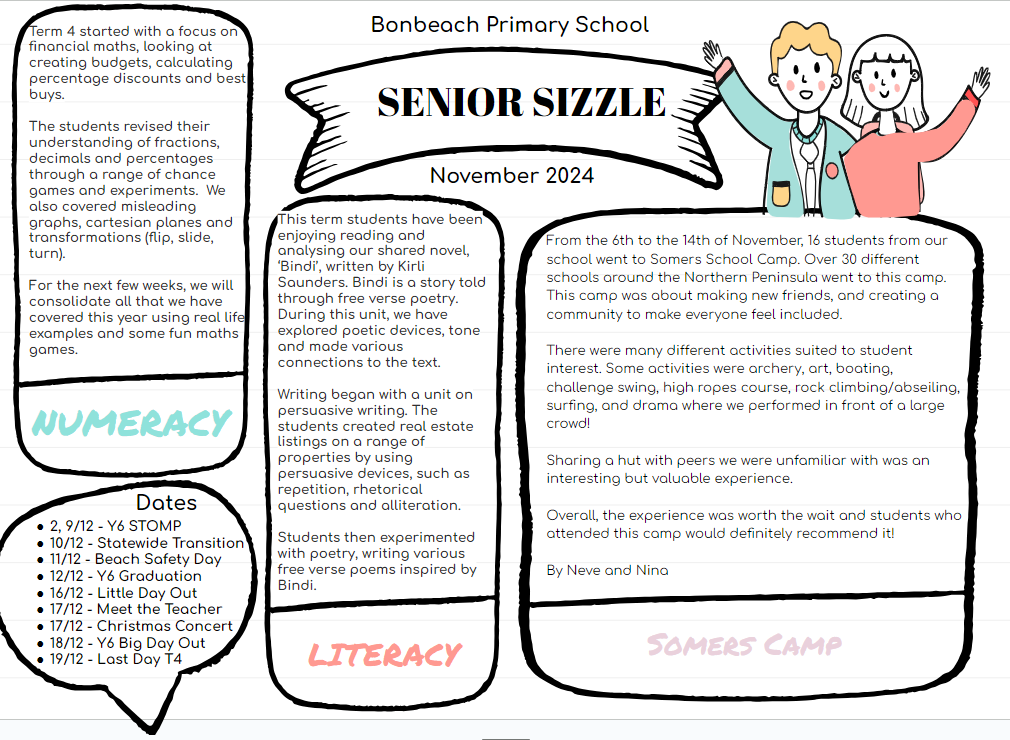 Bonbeach Primary School
SENIOR SIZZLE
November 2024
Term 4 started with a focus on
financial maths, looking at
creating budgets, calculating
percentage discounts and best
buys.
The students revised their
understanding of fractions,
decimals and percentages
through a range of chance
games and experiments. We
also covered misleading
graphs, cartesian planes and
transformations (flip, slide,
turn).
For the next few weeks, we will
consolidate all that we have
covered this year using real life
examples and some fun maths
games.
NUMERACY
Dates
• 2, 9/12 - Y6 STOMP
• 10/12 - Statewide Transition
• 11/12 - Beach Safety Day
• 12/12 - Y6 Graduation
• 16/12 - Little Day Out
• 17/12 - Meet the Teacher
• 17/12 - Christmas Concert
• 18/12 - Y6 Big Day Out
• 19/12 - Last Day T4
This term students have been
enjoying reading and
analysing our shared novel,
'Bindi', written by Kirli
Saunders. Bindi is a story told
through free verse poetry.
During this unit, we have
explored poetic devices, tone
and made various
connections to the text.
Writing began with a unit on
persuasive writing. The
students created real estate
listings on a range of
properties by using
persuasive devices, such as
repetition, rhetorical
questions and alliteration.
Students then experimented
with poetry, writing various
free verse poems inspired by
Bindi.
LITERACY
From the 6th to the 14th of November, 16 students from our
school went to Somers School Camp. Over 30 different
schools around the Northern Peninsula went to this camp.
This camp was about making new friends, and creating a
community to make everyone feel included.
There were many different activities suited to student
interest. Some activities were archery, art, boating,
challenge swing, high ropes course, rock climbing/abseiling,
surfing, and drama where we performed in front of a large
crowd!
Sharing a hut with peers we were unfamiliar with was an
interesting but valuable experience.
Overall, the experience was worth the wait and students who
attended this camp would definitely recommend it!
By Neve and Nina
SOMERS CAMP